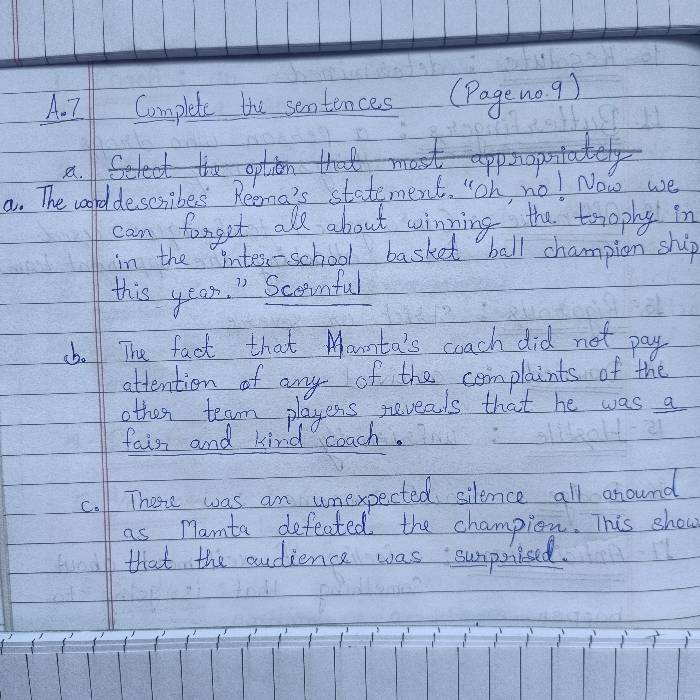 A.7 Complete the sentences (Page no. 9)
a. Select the option that most appropriately
a. The word describes Reema's statement. "Oh, no! Now we
can forget all about winning the trophy in
in the inter-school basket ball champion ship
this year." Scornful
b. The fact that Mamta's coach did not pay
attention of any of the complaints of the
other team players reveals that he was a
fair and kind coach.
c. There was an unexpected silence all around
as Mamta defeated the champion. This show
that the audience was surprised.